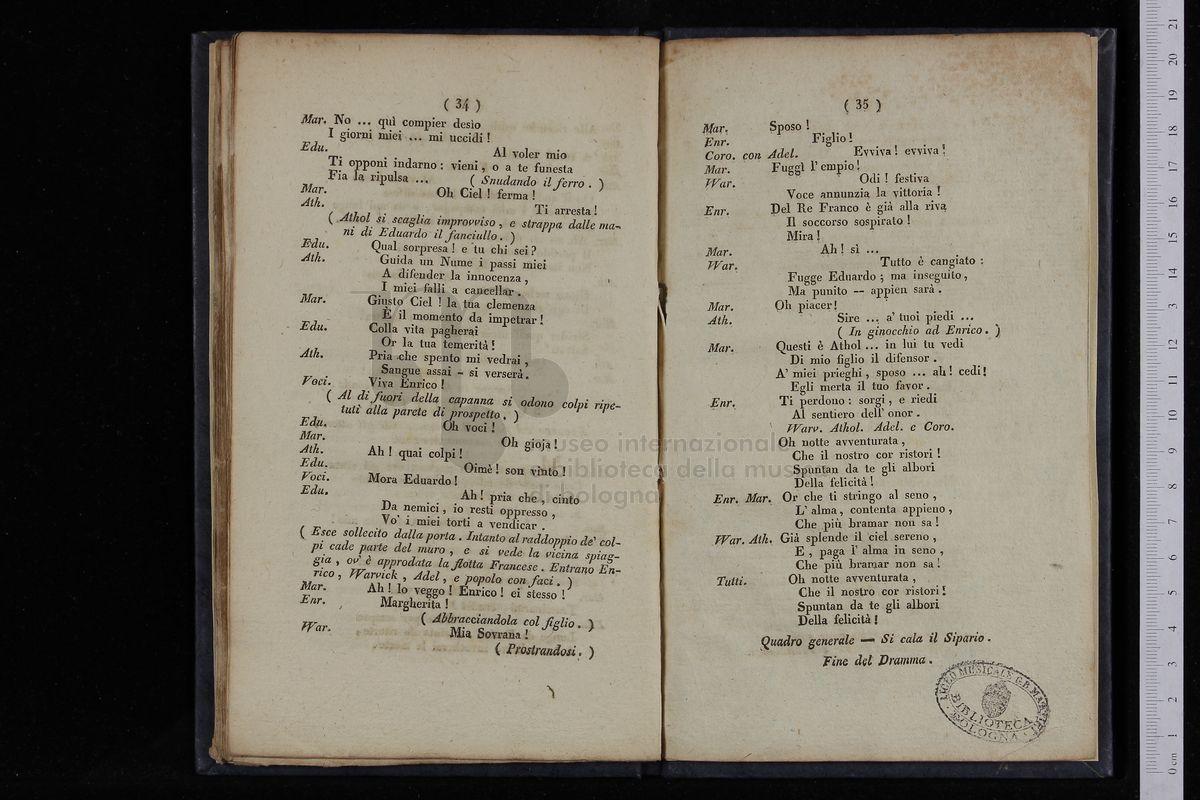 ( 34 )
Mar. No ... quì compier desìo
I giorni miei ... mi uccidi !
Edu. Al voler mio
Ti opponi indarno : vieni , o a te funesta
Fia la ripulsa ... ( Snudando il ferro . )
Mar. Oh Ciel ! ferma !
Ath. Ti arresta !
( Athol si scaglia improvviso , e strappa dalle ma-
ni di Eduardo il fanciullo . )
Edu. Qual sorpresa ! e tu chi sei ?
Ath. Guida un Nume i passi miei
A difender la innocenza ,
I miei falli a cancellar .
Mar. Giusto Ciel ! la tua clemenza
È il momento da impetrar !
Edu. Colla vita pagherai
Or la tua temerità !
Ath. Pria che spento mi vedrai ,
Sangue assai - si verserà .
Voci. Viva Enrico !
( Al di fuori della capanna si odono colpi ripe-
tuti alla parete di prospetto . )
Edu. Oh voci !
Mar. Oh gioja !
Ath. Ah ! quai colpi !
Edu. Oimè ! son vinto !
Voci. Mora Eduardo !
Edu. Ah ! pria che , cinto
Da nemici , io resti oppresso ,
Vo' i miei torti a vendicar .
( Esce sollecito dalla porta . Intanto al raddoppio de' col-
pi cade parte del muro , e si vede la vicina spiag-
gia , ov' è approdata la flotta Francese . Entrano En-
rico , Warvick , Adel , e popolo con faci . )
Mar. Ah ! lo veggo ! Enrico ! ei stesso !
Enr. Margherita !
( Abbracciandola col figlio . )
War. Mia Sovrana !
( Prostrandosi . )
( 35 )
Mar. Sposo !
Enr. Figlio !
Coro. con Adel. Evviva ! evviva !
Mar. Fuggì l' empio !
War. Odi ! festiva
Voce annunzia la vittoria !
Enr. Del Re Franco è già alla riva
Il soccorso sospirato !
Mira !
Mar. Ah ! sì ...
War. Tutto è cangiato :
Fugge Eduardo ; ma inseguito ,
Ma punito — appien sarà .
Mar. Oh piacer !
Ath. Sire ... a' tuoi piedi ...
( In ginocchio ad Enrico . )
Mar. Questi è Athol ... in lui tu vedi
Di mio figlio il difensor .
A' miei prieghi , sposo ... ah ! cedi !
Egli merta il tuo favor .
Enr. Ti perdono : sorgi , e riedi
Al sentiero dell' onor .
Warv. Athol. Adel. e Coro.
Oh notte avventurata ,
Che il nostro cor ristori !
Spuntan da te gli albori
Della felicità !
Enr. Mar. Or che ti stringo al seno ,
L' alma , contenta appieno ,
Che più bramar non sa !
War. Ath. Già splende il ciel sereno ,
E , paga l' alma in seno ,
Che più bramar non sa !
Tutti. Oh notte avventurata ,
Che il nostro cor ristori !
Spuntan da te gli albori
Della felicità !
Quadro generale — Si cala il Sipario .
Fine del Dramma .
LICEO MUSICALE G.B. MARTINI
BIBLIOTECA
BOLOGNA
museo internazionale
biblioteca della musica
di bologna
0 cm 1 2 3 4 5 6 7 8 9 10 11 12 13 14 15 16 17 18 19 20 21